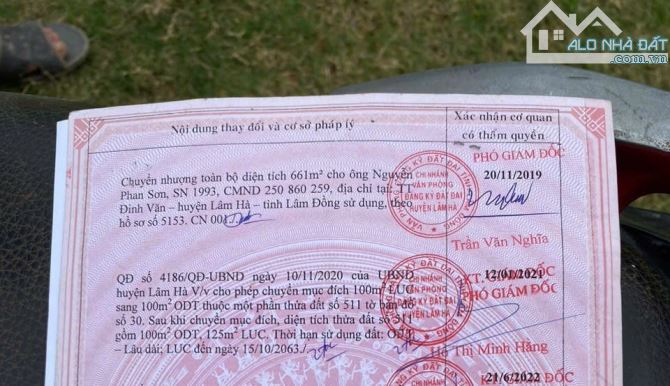 ALO NHÀ ĐẤT
.com.vn
Nội dung thay đổi và cơ sở pháp lý
Xác nhận cơ quan
có thẩm quyền
Chuyển nhượng toàn bộ diện tích 661m² cho ông Nguyễn
Phan Sơn, SN 1993, CMND 250 860 259, địa chỉ tại: TT
Đinh Văn – huyện Lâm Hà – tỉnh Lâm Đồng sử dụng, theo
hồ sơ số 5153. CN 001
PHÓ GIÁM ĐỐC
20/11/2019
CHI NHÁNH
VĂN PHÒNG
ĐĂNG KÝ ĐẤT ĐAI
HUYỆN LÂM HÀ
Trần Văn Nghĩa
QĐ số 4186/QĐ-UBND ngày 10/11/2020 của UBND
huyện Lâm Hà V/v cho phép chuyển mục đích 100m² LUC
sang 100m² ODT thuộc một phần thửa đất số 511 tờ bản đồ
số 30. Sau khi chuyển mục đích, diện tích thửa đất số 511
gồm 100m² ODT, 125m² LUC. Thời hạn sử dụng đất: ODT
– Lâu dài; LUC đến ngày 15/10/2063./.
12/01/2021
KT. GIÁM ĐỐC
PHÓ GIÁM ĐỐC
CHI NHÁNH
VĂN PHÒNG
ĐĂNG KÝ ĐẤT ĐAI
HUYỆN LÂM HÀ
Hồ Thị Minh Hằng
21/6/2022